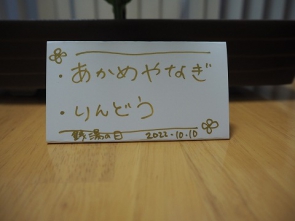 ・あかめやなぎ
・りんどう
銭湯の日 2022.10.10